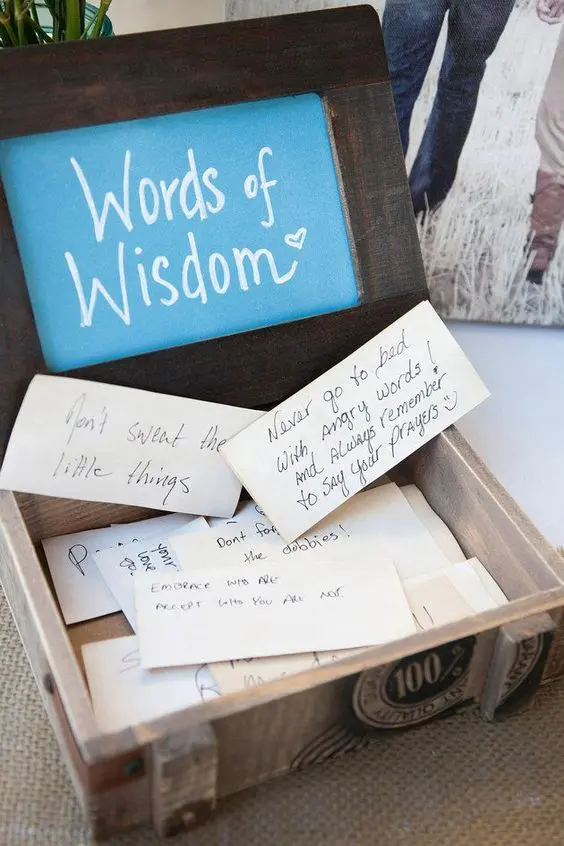 Words of
Wisdom
Don't sweat the
little things
Never go to bed
with angry words!
and always remember
to say your prayers
Dont for
the dobbies!
love
your
EMBRACE WHO ARE
ACCEPT WHO YOU ARE NOT.
100%
QUALITY